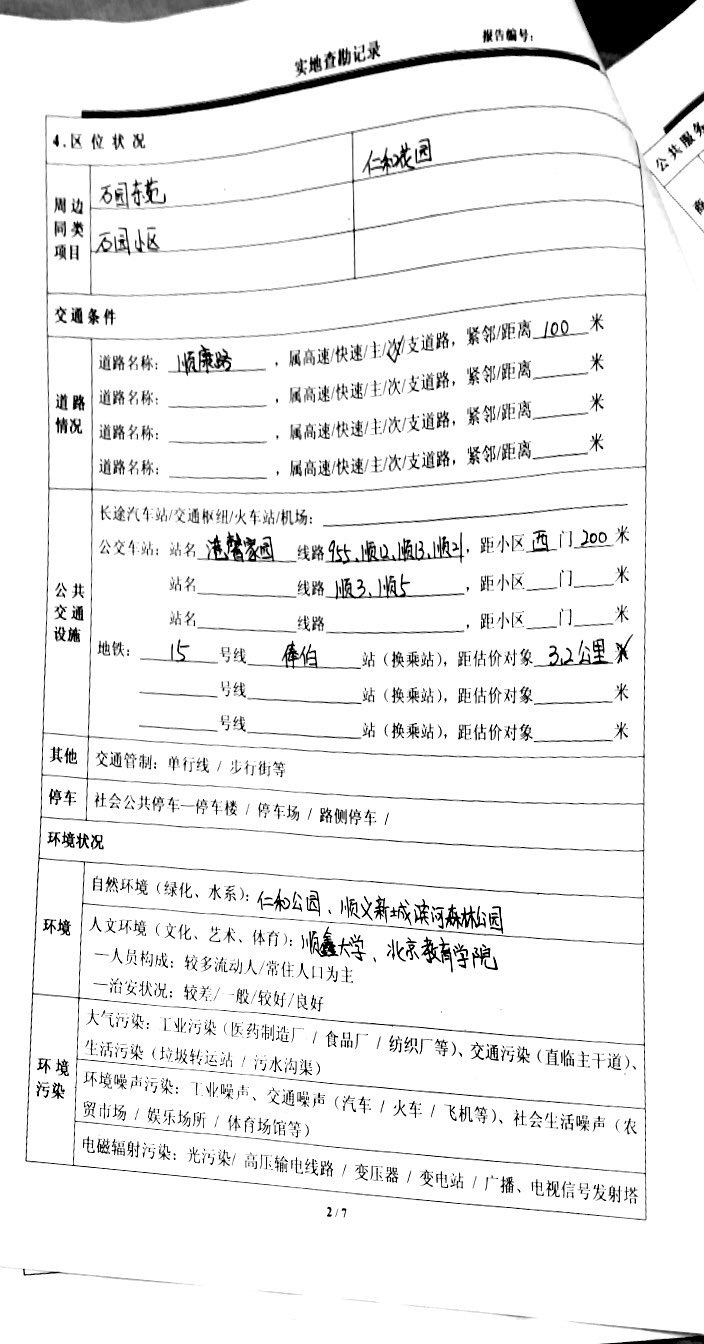 报告编号：
实地查勘记录
4.区位状况
周边同类项目
石园东苑
仁和花园
石园小区
交通条件
道路情况
道路名称：顺康路，属高速/快速/主/次/支道路，紧邻/距离 100 米
道路名称：________，属高速/快速/主/次/支道路，紧邻/距离______米
道路名称：________，属高速/快速/主/次/支道路，紧邻/距离______米
道路名称：________，属高速/快速/主/次/支道路，紧邻/距离______米
公共交通设施
长途汽车站/交通枢纽/火车站/机场：________
公交车站：站名 港馨家园 线路 955、顺12、顺13、顺21，距小区 西 门 200 米
站名________线路 顺3、顺5，距小区____门____米
站名________线路________，距小区____门____米
地铁：15 号线 俸伯 站（换乘站），距估价对象 3.2公里 米
______号线________站（换乘站），距估价对象______米
______号线________站（换乘站），距估价对象______米
其他 交通管制：单行线 / 步行街等
停车 社会公共停车—停车楼 / 停车场 / 路侧停车 /
环境状况
环境
自然环境（绿化、水系）：仁和公园、顺义新城滨河森林公园
人文环境（文化、艺术、体育）：顺鑫大学、北京教育学院
—人员构成：较多流动人/常住人口为主
—治安状况：较差/一般/较好/良好
环境污染
大气污染：工业污染（医药制造厂 / 食品厂 / 纺织厂等）、交通污染（直临主干道）、
生活污染（垃圾转运站 / 污水沟渠）
环境噪声污染：工业噪声、交通噪声（汽车 / 火车 / 飞机等）、社会生活噪声（农
贸市场 / 娱乐场所 / 体育场馆等）
电磁辐射污染：光污染/ 高压输电线路 / 变压器 / 变电站 / 广播、电视信号发射塔
2/7
公共服务
商